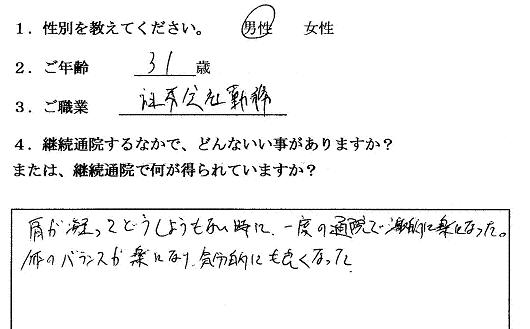 1．性別を教えてください。　男性　女性
2．ご年齢　31歳
3．ご職業　証券会社勤務
4．継続通院するなかで、どんないい事がありますか？
または、継続通院で何が得られていますか？
肩が凝ってどうしようもない時に、一度の通院で劇的に楽になった。
体のバランスが楽になり、気分的にも良くなった